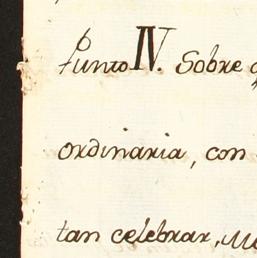 Punto IV. Sobre
ordinaria, con
tan celebrar,